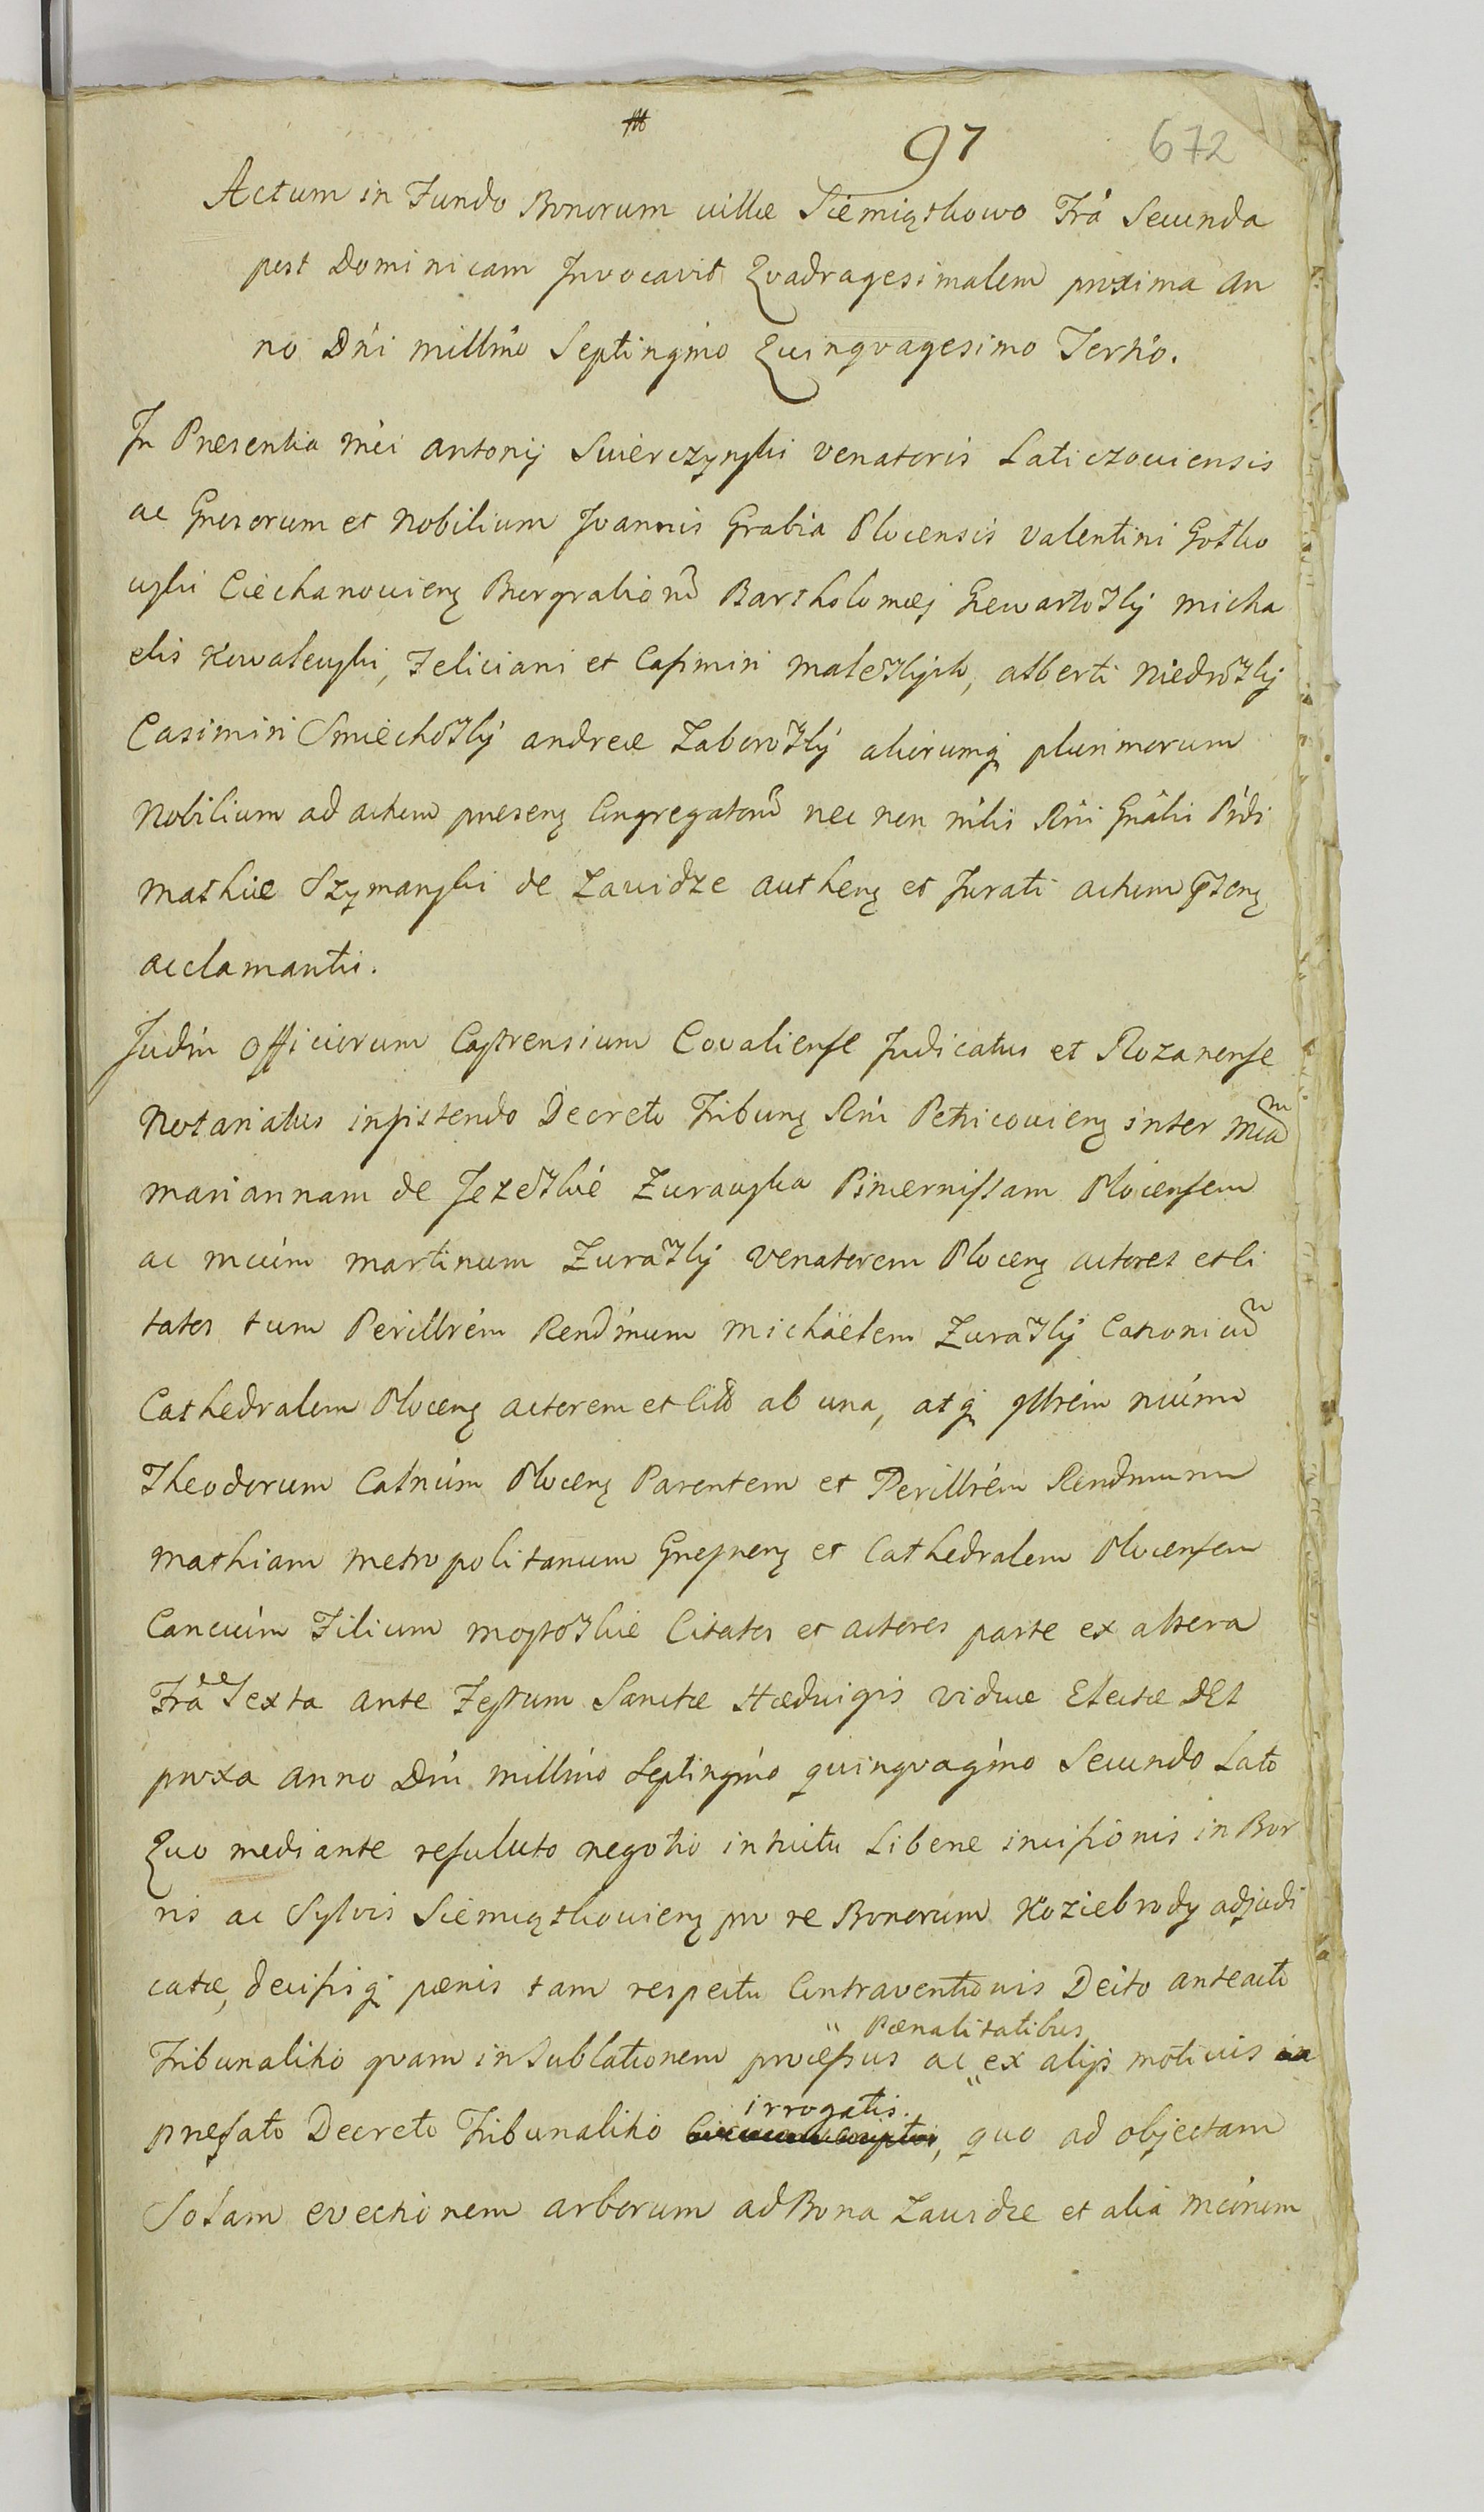 97 672
Actum in Fundo Bonorum villæ Siemiątkowo Fra Secunda
post Dominicam Invocavit Qvadragesimalem proxima An
no Dni millmo Septingmo Quinqvagesimo Tertio.
In Presentia mei Antonij Swierczynski Venatoris Laticzoviensis
ac Gnrsorum et Nobilium Joannis Grabia Plocensis Valentini Gotko
wski Ciechanovienę Burgrabiorũ Bartholomæj Gewartowskij Micha
elis Kowalewski, Feliciani et Casimiri Malewskijch, Alberti Niedrowskij
Casimiri Smiechowskij Andreæ Zaborowskij aliorumq plurimorum
Nobilium ad actum presenę Congregatorũ nec non mlis Rni Gnalis Prdi
Mathiæ Szymanski de Zawidze authenę et Jurati actum pntenę
acclamantis.
Judm Officiorum Castrensium Covaliense Judicatus et Rozanense
Notariatus insistendo Decreto Tribunę Rni Petricovienę inter Mcam
Mariannam de Jezewskie Zurawska Pincernissam Plocensem
ac Mcum Martinum Zurawskij Venatorem Plocenę actores et Ci
tatos tum Perillrem Rendmum Michaelem Zurawskij Canonicũ
Cathedralem Plocenę actorem et Citũ ab una, atq Illrem Mcum
Theodorum Catnum Plocenę Parentem et Perillrem Rendmum
Mathiam Metropolitanum Gnesnenę et Cathedralem Plocensem
Cancum Filium Mostowskie Citatos et actores parte ex altera
Fra Sexta ante Festum Sanctæ Hædvigis Viduæ Electæ DEI
proxa Anno Dni millmo Septingmo quinqvagmo Secundo Lato
Quo mediante resoluto negotio intuitu Liberæ incisionis in Bor
ris ac Sylvis Siemiątkovienę pro re Bonorum Koziebrody adjudi
catæ, decisisq pænis tam respectu Contraventionis Dcito anteacto
" Pænalitatibus
Tribunalitio qvam in Sublationem processus ac " ex alijs motivis in
irrogatis.
prefato Decreto Tribunalitio, quo ad objectam
Solam evectionem arborum ad Bona Zawidze et alia Mcorum